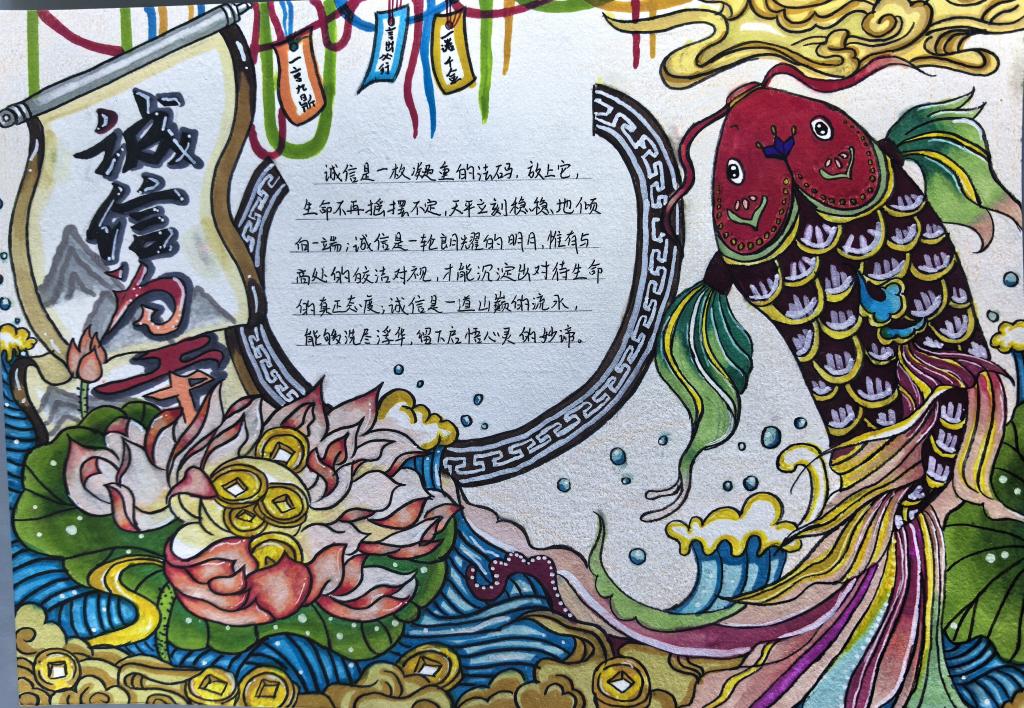 一言九鼎
言出必行
一诺千金
诚信为
诚信是一枚凝重的法码，放上它，
生命不再摇摆不定，天平立刻稳稳地倾
向一端；诚信是一轮朗耀的明月，惟有与
高处的皎洁对视，才能沉淀出对待生命
的真正态度。诚信是一道山巅的流水，
能够洗尽浮华，留下启悟心灵的妙谛。